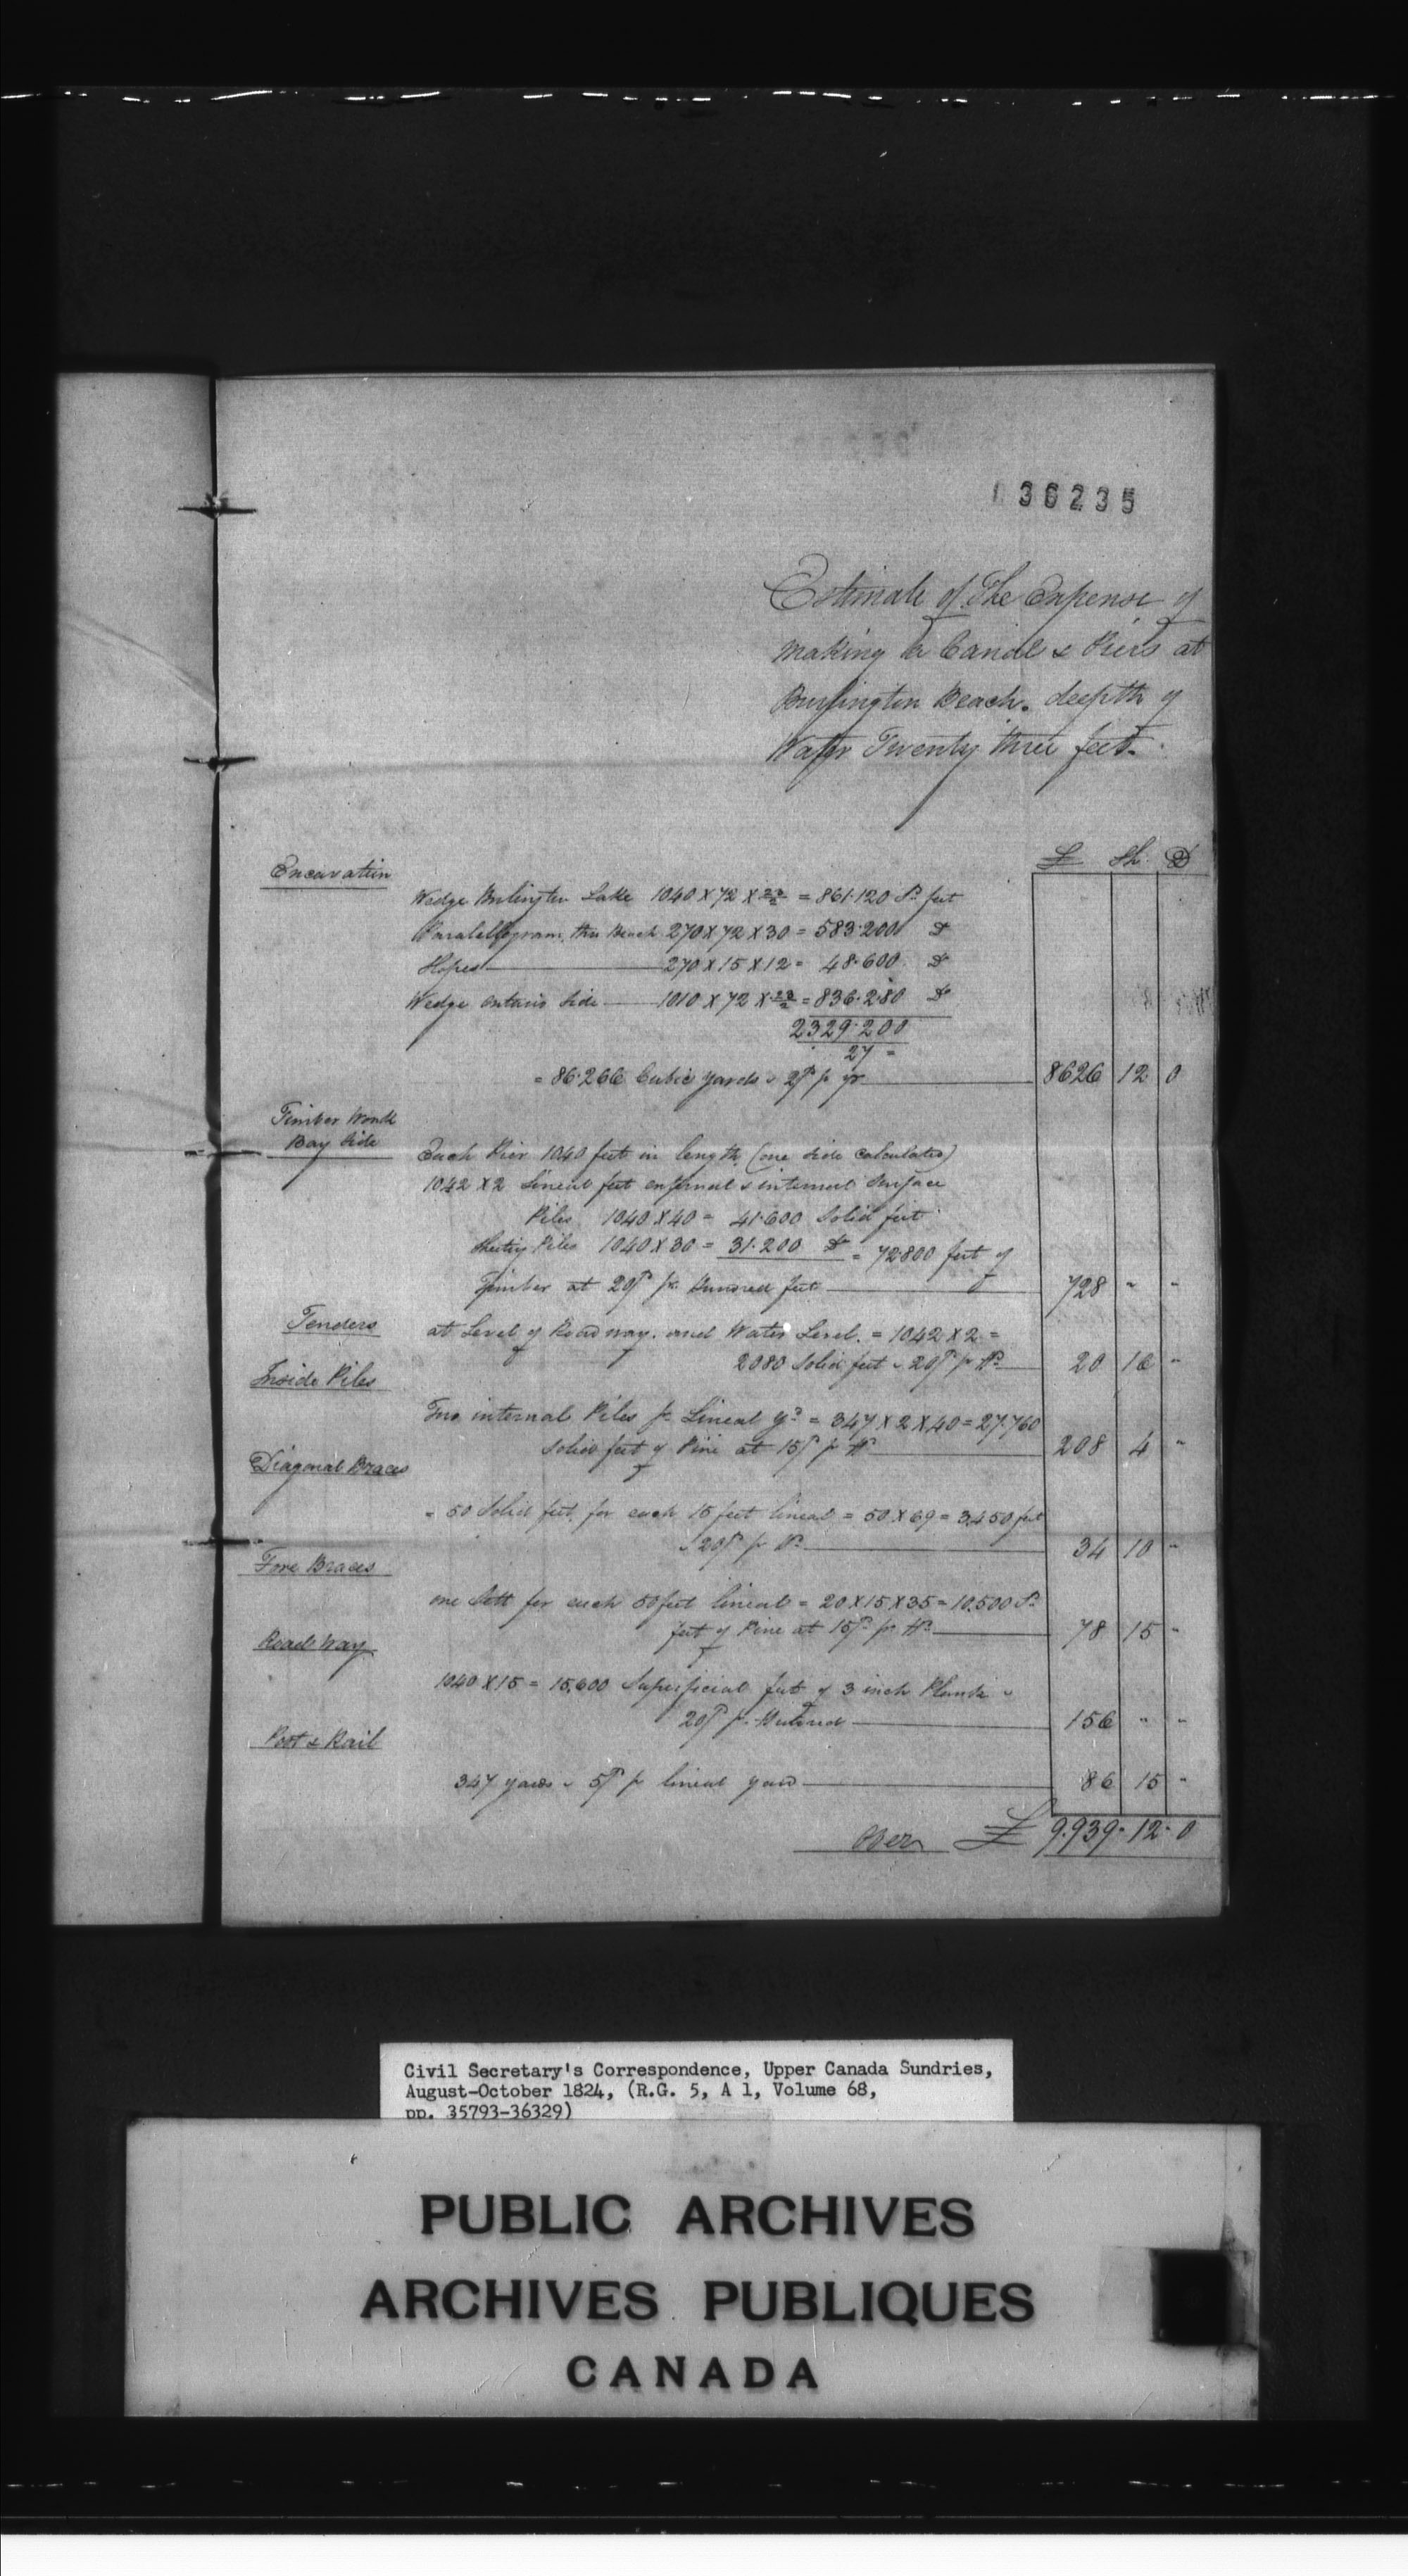 36235
Estimate of The Expense of
making a Canal & Piers at
Burlington Beach. deepth of
Water Twenty three feet.
£ Sh. D
Excavation
Wedge Burlington Lake 1040 X 72 X 23/2 = 861.120 Sd. feet
Paralellogram, thro Beach. 270 X 72 X 30 = 583.200 Do
Slopes 270 X 15 X 12 = 48.600 Do
Wedge Ontario Side 1010 X 72 X 23/2 = 836.280 Do
2329.200
27 =
= 86.266 Cubic Yards 2/ p yd 8626 12 0
Timber Work
Bay Side
Each Pier 1040 feet in length. (one side calculated)
1042 X 2 Lineal feet external & internal Surface
Piles 1040 X 40 = 41.600 Solid feet
Sheeting Piles 1040 X 30 = 31.200 Do = 72800 feet of
Timber at 20/ pr Hundred feet 728 " "
Tenders
at Level of Roadway. and Water Level. = 1042 X 2 =
2080 Solid feet 20/ p Hd 20 16 "
Inside Piles
Two internal Piles pr Lineal yd = 347 X 2 X 40 = 27.760
Solid feet of Pine at 15/ p Hd 208 4 "
Diagonal Braces
= 50 Solid feet, for each 15 feet lineal = 50 X 69 = 3.450 feet
20/ p Hd 34 10 "
Fore Braces
one Sett for each 50 feet lineal = 20 X 15 X 35 = 10.500 Sd
feet of Pine at 15/ pr Hd 78 15 "
Road Way
1040 X 15 = 15.600 Superficial feet of 3 inch Plank
20/ p. Hundred 156 " "
Post & Rail
347 yards 5/ p lineal yard 86 15 "
Over £ 9.939. 12. 0
Civil Secretary's Correspondence, Upper Canada Sundries,
August-October 1824, (R.G. 5, A 1, Volume 68,
pp. 35793-36329)
PUBLIC ARCHIVES
ARCHIVES PUBLIQUES
CANADA